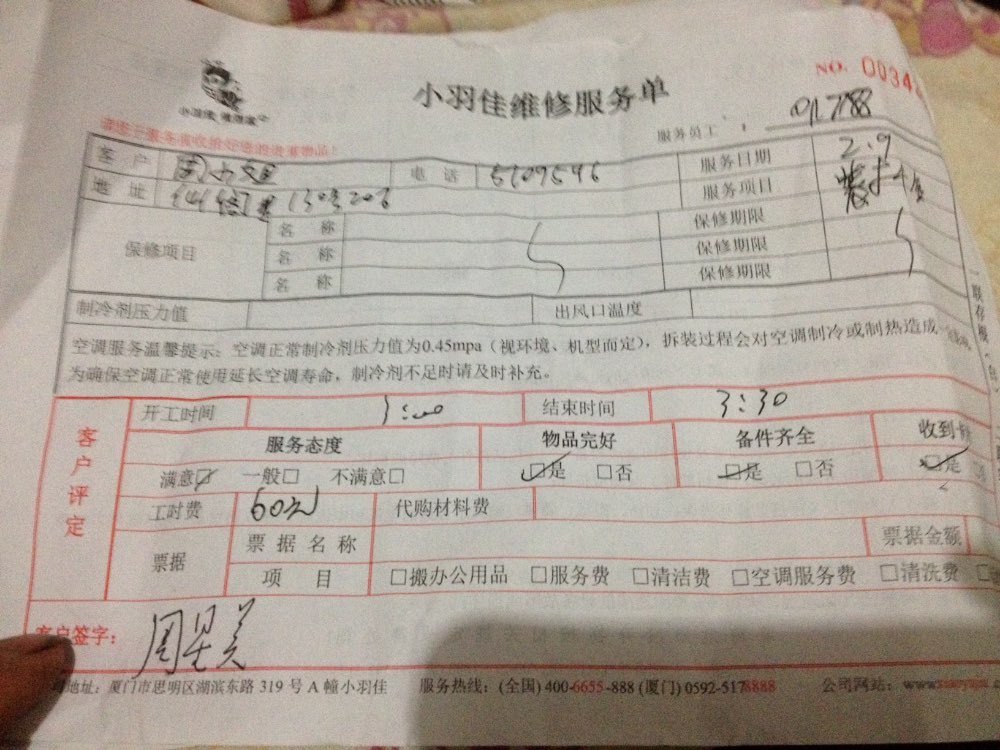 小羽佳维修服务单
NO. 0034
小羽佳
服务员工： 011788
请您于服务前收拾好您的贵重物品！
客户 电话 5109546 服务日期 2.9
地址 130号206 服务项目
保修项目 名称 保修期限
名称 保修期限
名称 保修期限
制冷剂压力值 出风口温度
空调服务温馨提示：空调正常制冷剂压力值为0.45mpa（视环境、机型而定），拆装过程会对空调制冷或制热造成
为确保空调正常使用延长空调寿命，制冷剂不足时请及时补充。
客户评定
开工时间 3:00 结束时间 3:30
服务态度 物品完好 备件齐全 收到
满意☑ 一般□ 不满意□ ☑是 □否 ☑是 □否 ☑是
工时费 60元 代购材料费
票据 票据名称 票据金额
项目 □搬办公用品 □服务费 □清洁费 □空调服务费 □清洗费
客户签字：
地址：厦门市思明区湖滨东路 319 号 A 幢小羽佳 服务热线：(全国) 400-6655-888 (厦门) 0592-5178888 公司网站：www.